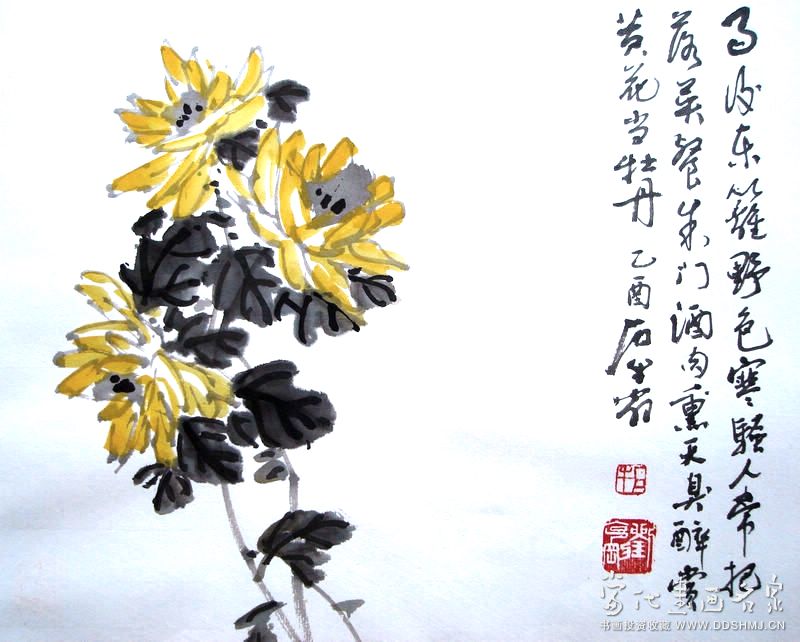 雨後东籬野色寒騷人常把
落英餐朱门酒肉熏天臭醉赏
黄花当牡丹 乙酉 石牛翁
当代書画名家
书画投资收藏 WWW.DDSHMJ.CN